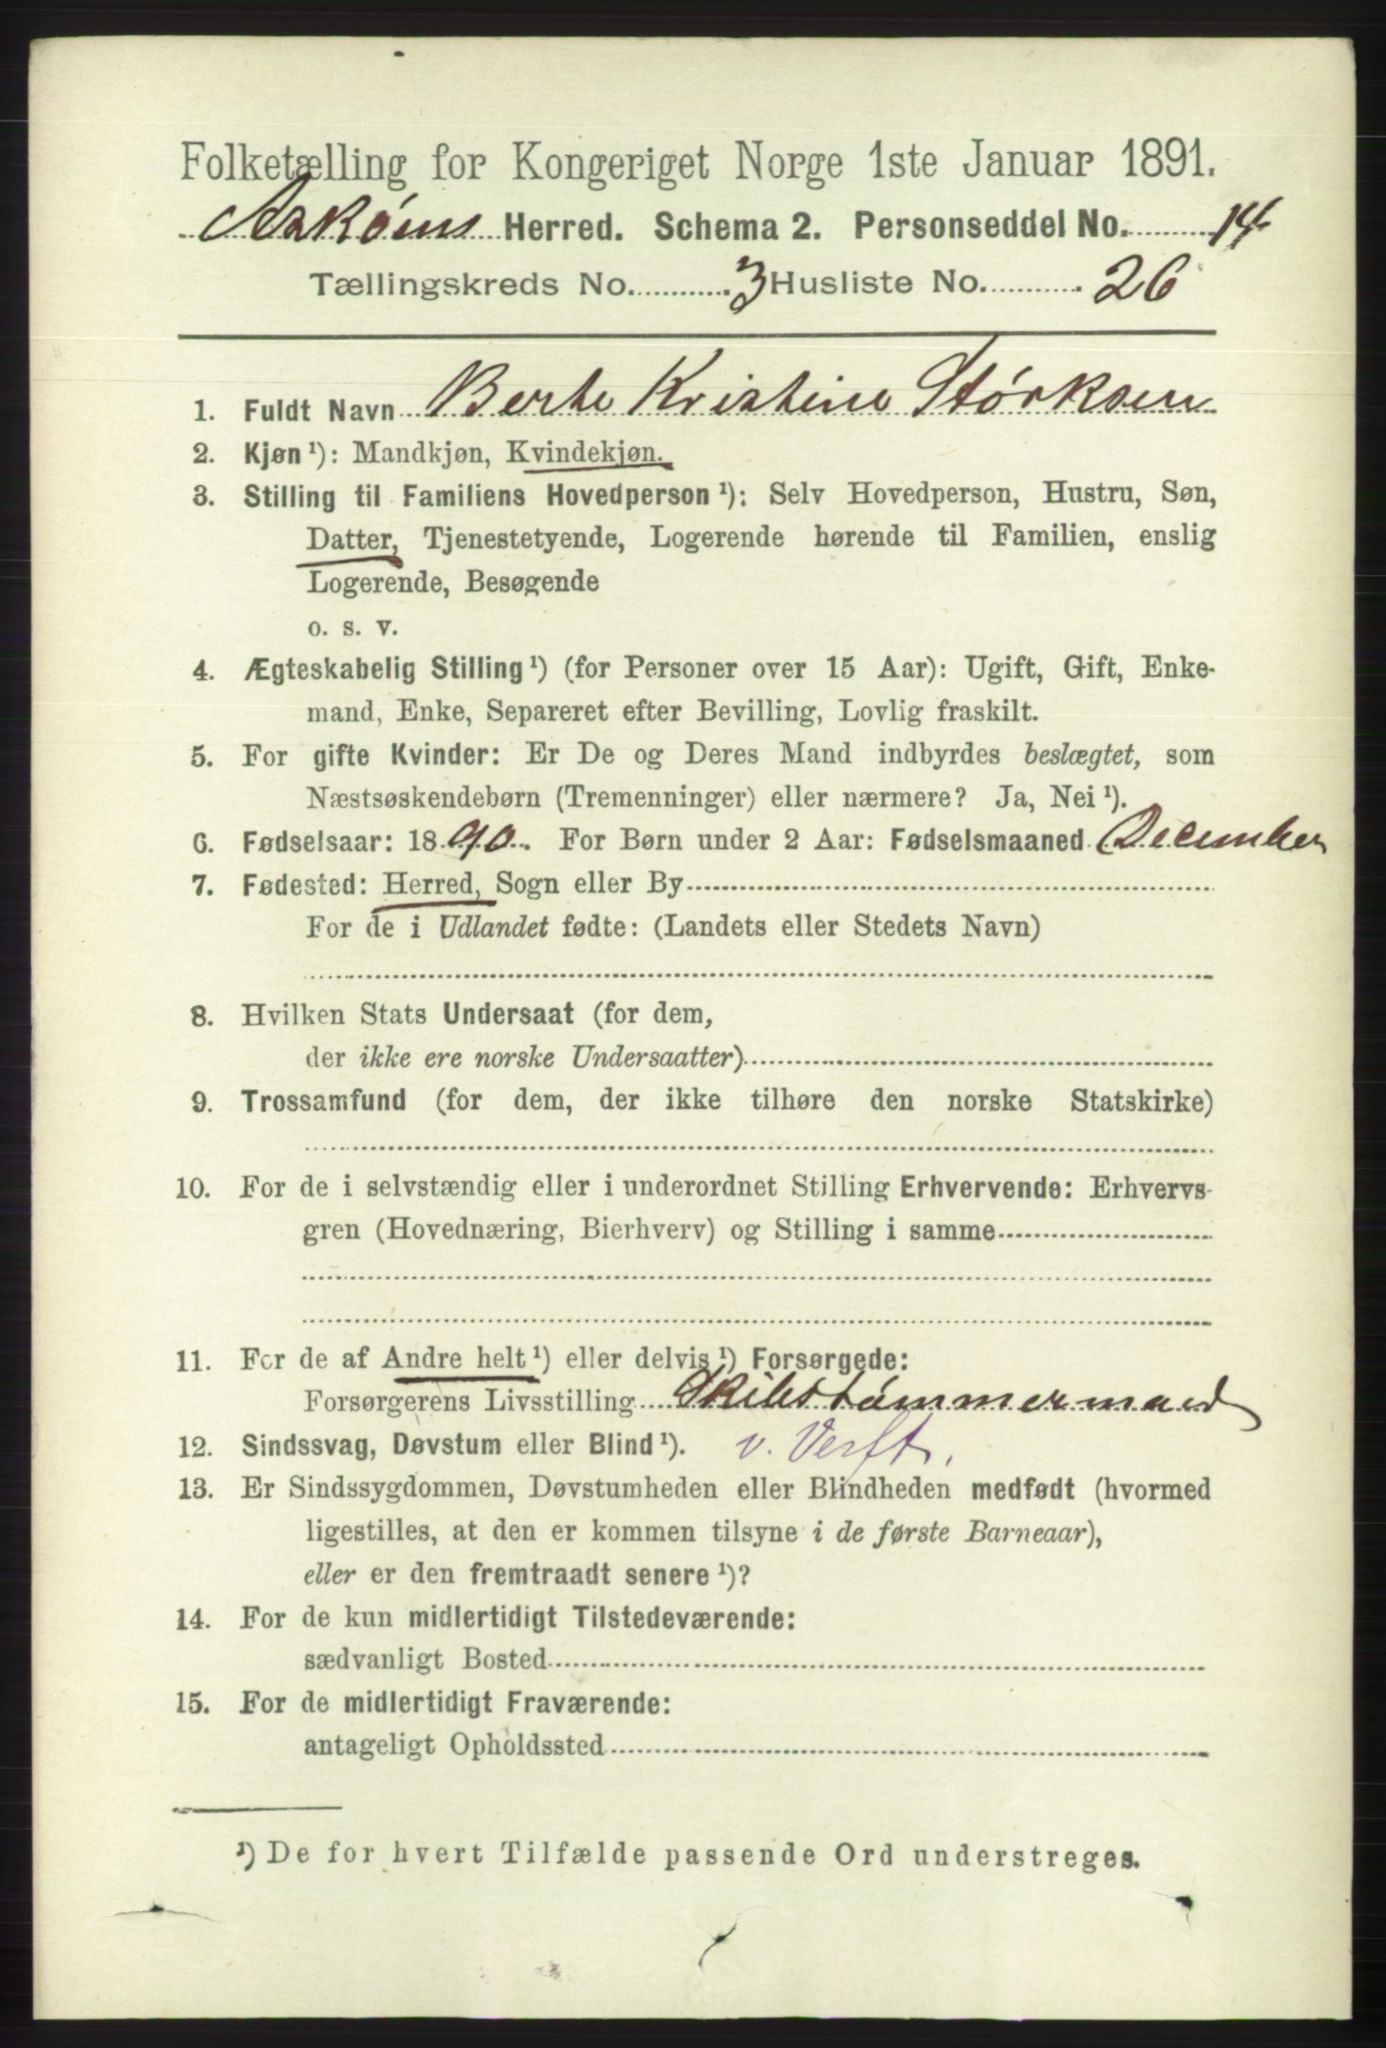 Folketælling for Kongeriget Norge 1ste Januar 1891.
Askøens Herred. Schema 2. Personseddel No. 14
Tællingskreds No. 3 Husliste No. 26
1. Fuldt Navn Berte Kristine Størksen
2. Kjøn ¹): Mandkjøn, Kvindekjøn.
3. Stilling til Familiens Hovedperson ¹): Selv Hovedperson, Hustru, Søn,
Datter, Tjenestetyende, Logerende hørende til Familien, enslig
Logerende, Besøgende
o. s. v.
4. Ægteskabelig Stilling ¹) (for Personer over 15 Aar): Ugift, Gift, Enke-
mand, Enke, Separeret efter Bevilling, Lovlig fraskilt.
5. For gifte Kvinder: Er De og Deres Mand indbyrdes beslægtet, som
Næstsøskendebørn (Tremenninger) eller nærmere? Ja, Nei ¹).
6. Fødselsaar: 1890. For Børn under 2 Aar: Fødselsmaaned December
7. Fødested: Herred, Sogn eller By
For de i Udlandet fødte: (Landets eller Stedets Navn)
8. Hvilken Stats Undersaat (for dem,
der ikke ere norske Undersaatter)
9. Trossamfund (for dem, der ikke tilhøre den norske Statskirke)
10. For de i selvstændig eller i underordnet Stilling Erhvervende: Erhvervs-
gren (Hovednæring, Bierhverv) og Stilling i samme
11. For de af Andre helt ¹) eller delvis ¹) Forsørgede:
Forsørgerens Livsstilling Skibstømmermand
12. Sindssvag, Døvstum eller Blind ¹). v. Verft.
13. Er Sindssygdommen, Døvstumheden eller Blindheden medfødt (hvormed
ligestilles, at den er kommen tilsyne i de første Barneaar),
eller er den fremtraadt senere ¹)?
14. For de kun midlertidigt Tilstedeværende:
sædvanligt Bosted
15. For de midlertidigt Fraværende:
antageligt Opholdssted
¹) De for hvert Tilfælde passende Ord understreges.